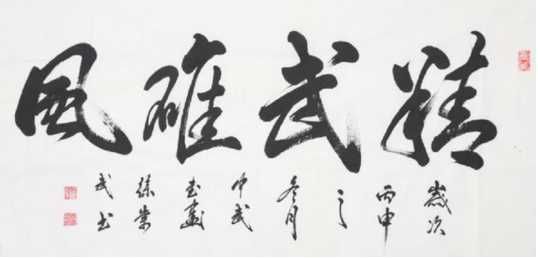 精武雄風
歲次
丙申
之
冬月
中武
書畫
徐
武書